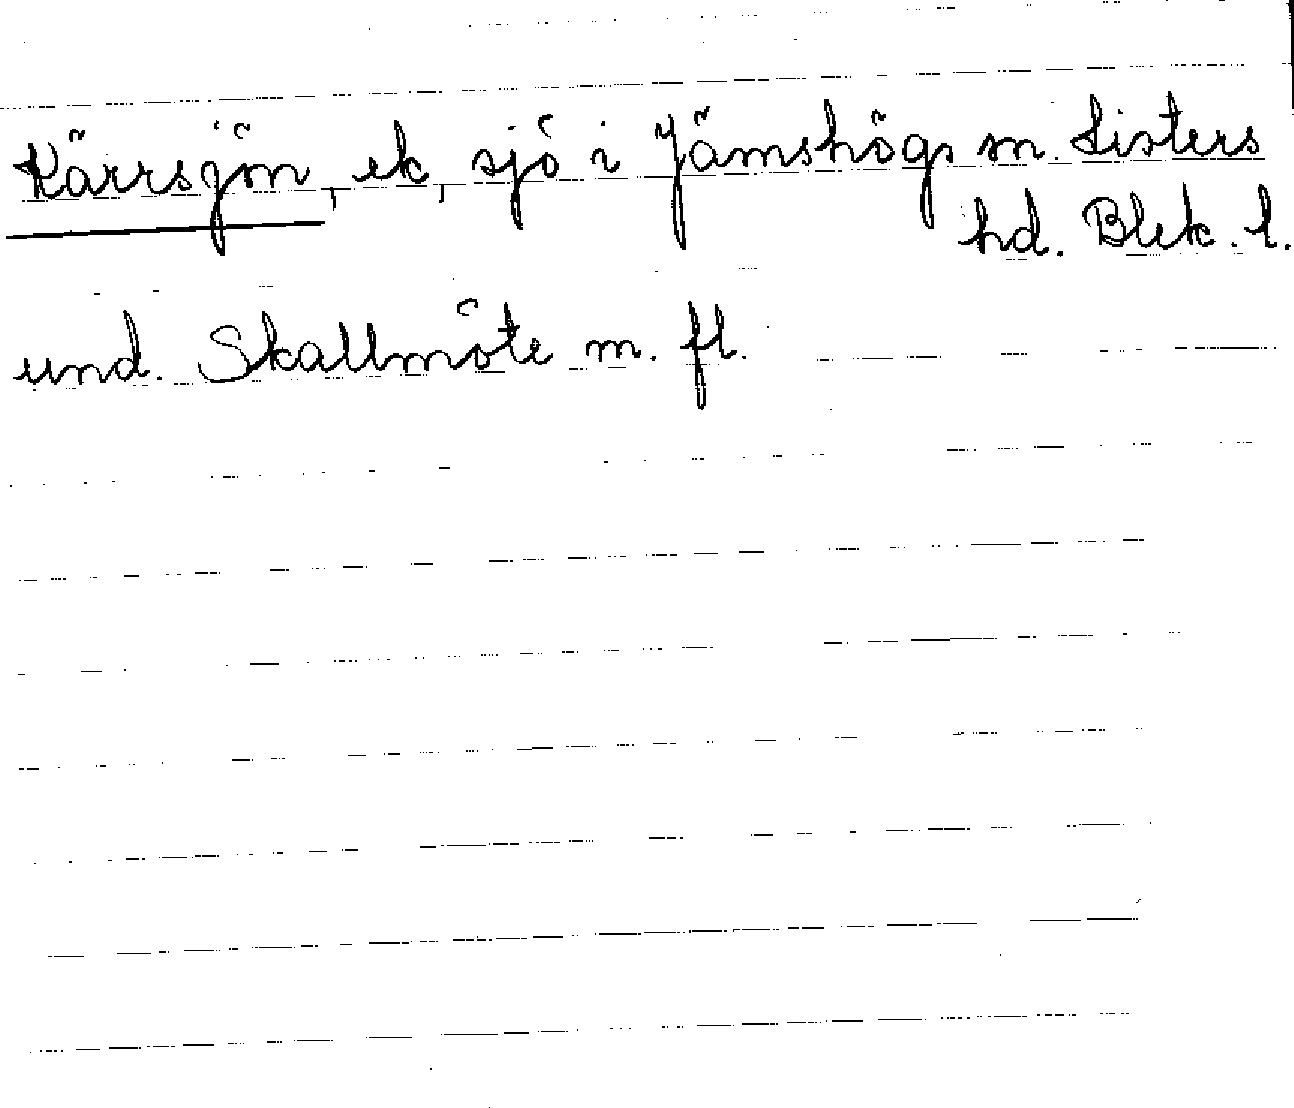 Kärrsjön, ek, sjö i Jämshögs sn. Listers
hd. Blek. l.
und. Skallmöte m. fl.